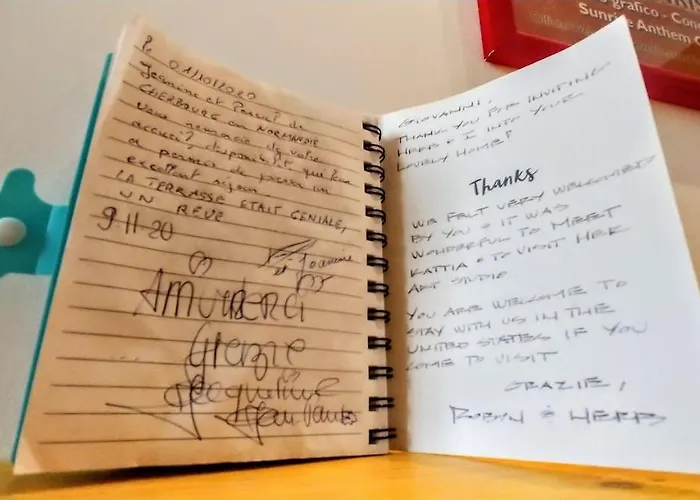 Le 01/10/2020
Jeannine et Pascal de
CHERBOURG en NORMANDIE
vous remercie de votre
accueil, disponibilité que
a permis de passer un
excellent séjour
LA TERRASSE ETAIT GENIALE,
UN REVE
Jeannine
9-11-20
Grazie
Jacqueline
Jean Paul
grafico - Conc
Sunrise Anthem
GIOVANNI,
THANK YOU FOR INVITING
HERB & I INTO YOUR
LOVELY HOME!
Thanks
WE FELT VERY WELCOMED
BY YOU & IT WAS
WONDERFUL TO MEET
KATTIA & TO VISIT HER
ART STUDIO
YOU ARE WELCOME TO
STAY WITH US IN THE
UNITED STATES IF YOU
COME TO VISIT
GRAZIE,
ROBYN & HERB